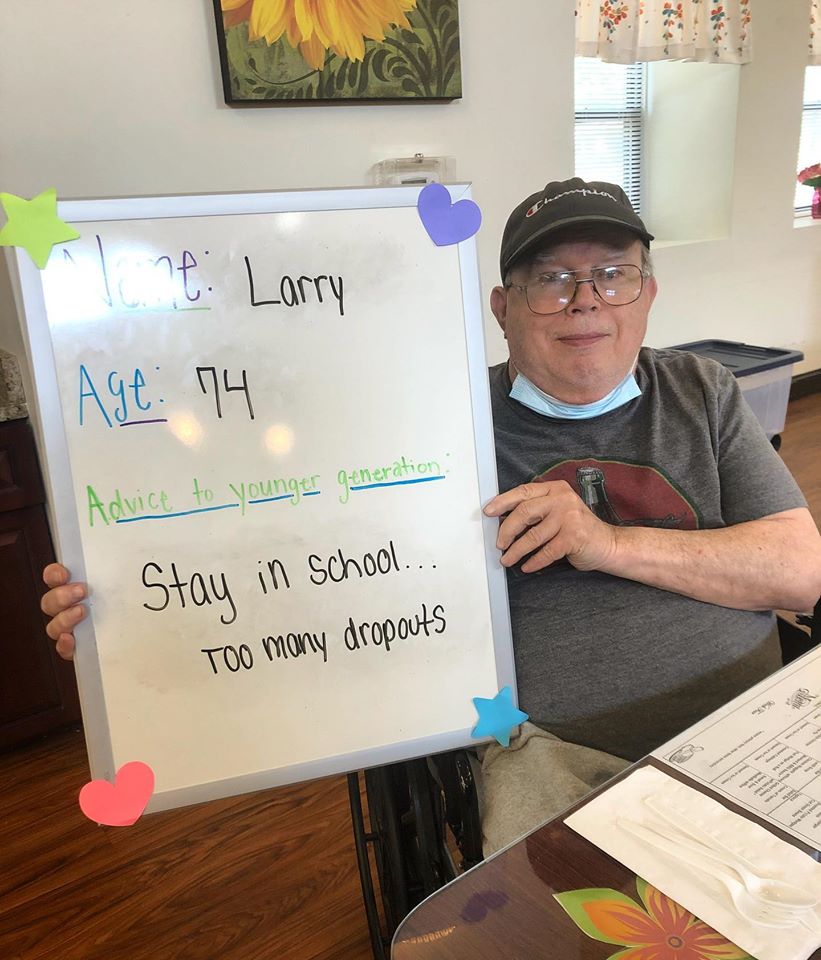 Name: Larry
Age: 74
Advice to younger generation:
Stay in school...
Too many dropouts
Champion
Menu